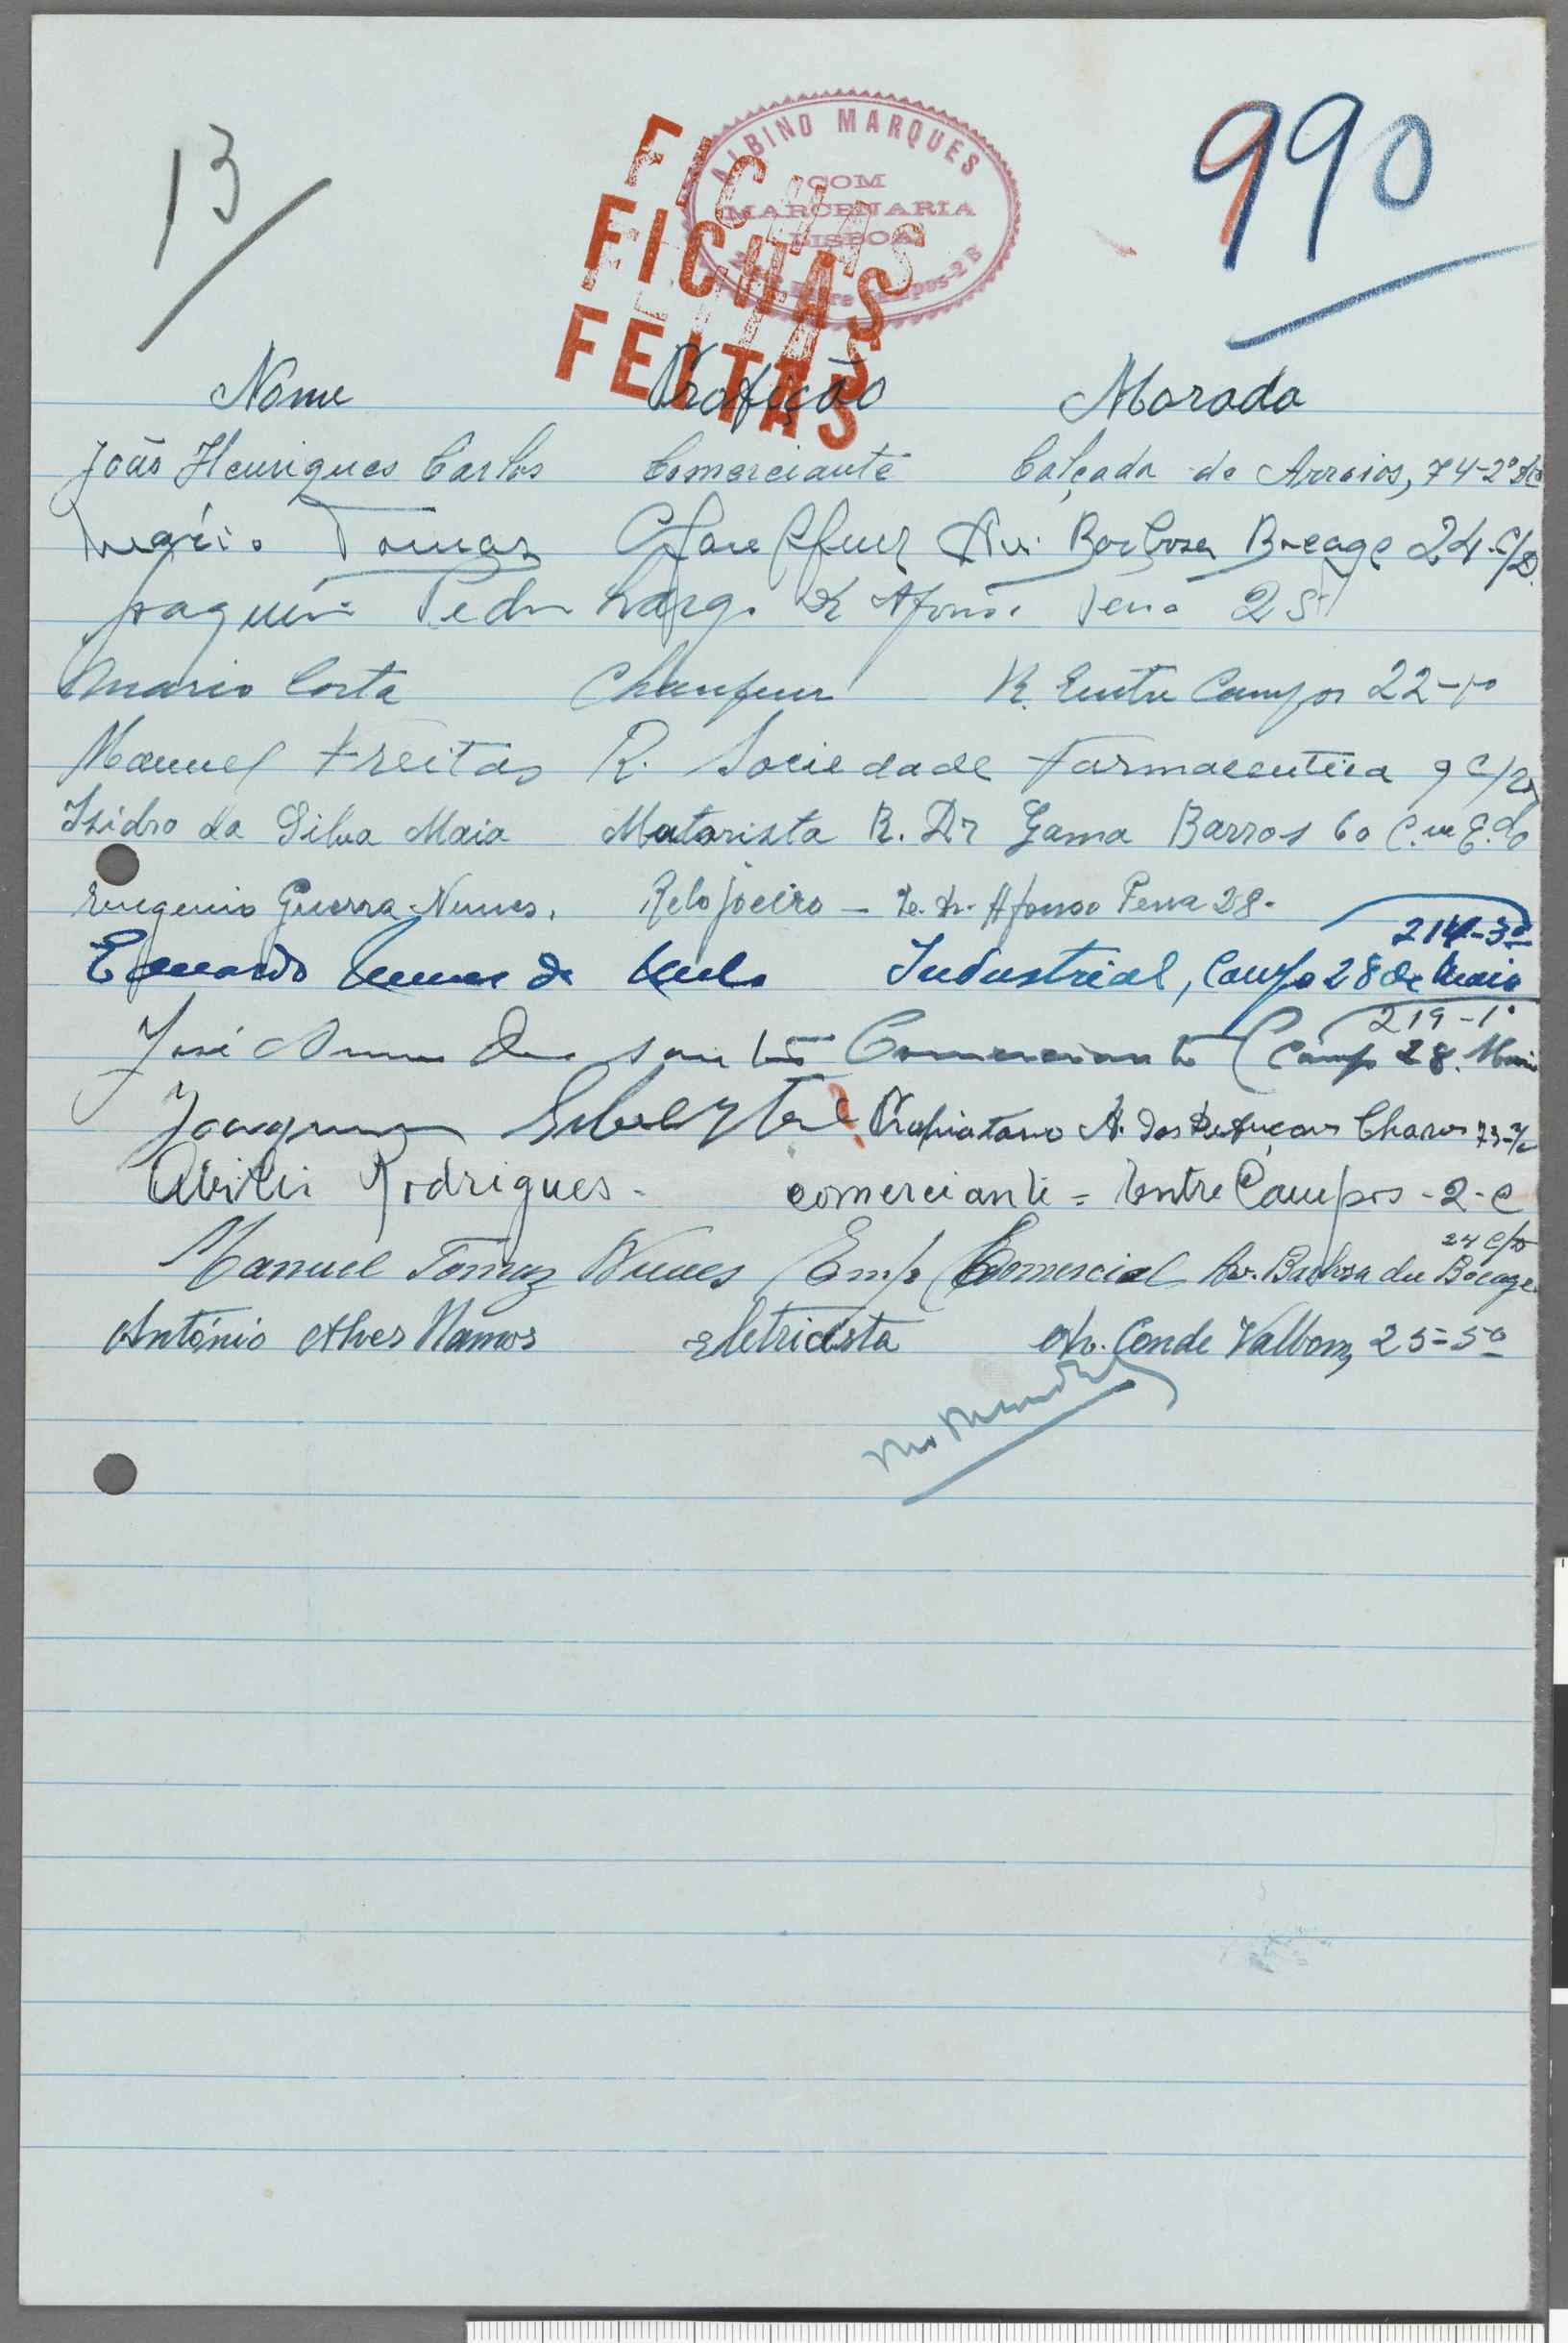 13
990
ALBINO MARQUES
COM
MARCENARIA
LISBOA
FICHAS
FEITAS
FICHAS
FEITAS
Nome Profição Morada
João Henriques Carlos Comerciante Calçada de Arroios, 74-2º Dto
Tomaz Av. Barbosa Bocage 24-c/D.
Joaquim Pedro Largo Dr Afonso Pena 25
Mario Costa Chaufeur R. Entre Campos 22-
Manuel Freitas R. Sociedade Farmaceutica 9 c/v
Izidro da Silva Maia Motorista R. Dr Gama Barros 60 C.ve E.do
Eugenio Guerra Nunes. Relojoeiro - Afonso Pena 28.
214-3º
Eduardo Nunes de Industrial, Campo 28 de Maio
219-1º
José Nunes dos Santos Comerciante Campo 28. Maio
Joaquim Propriatario R. das Chaves 73-
Abilio Rodrigues. comerciante = Entre Campos - 2 - C
24 c/D
Manuel Tomaz Nunes Emp Comercial Av. Barbosa du Bocage
António Alves Ramos Eletricista Av. Conde Valbom, 25-5º